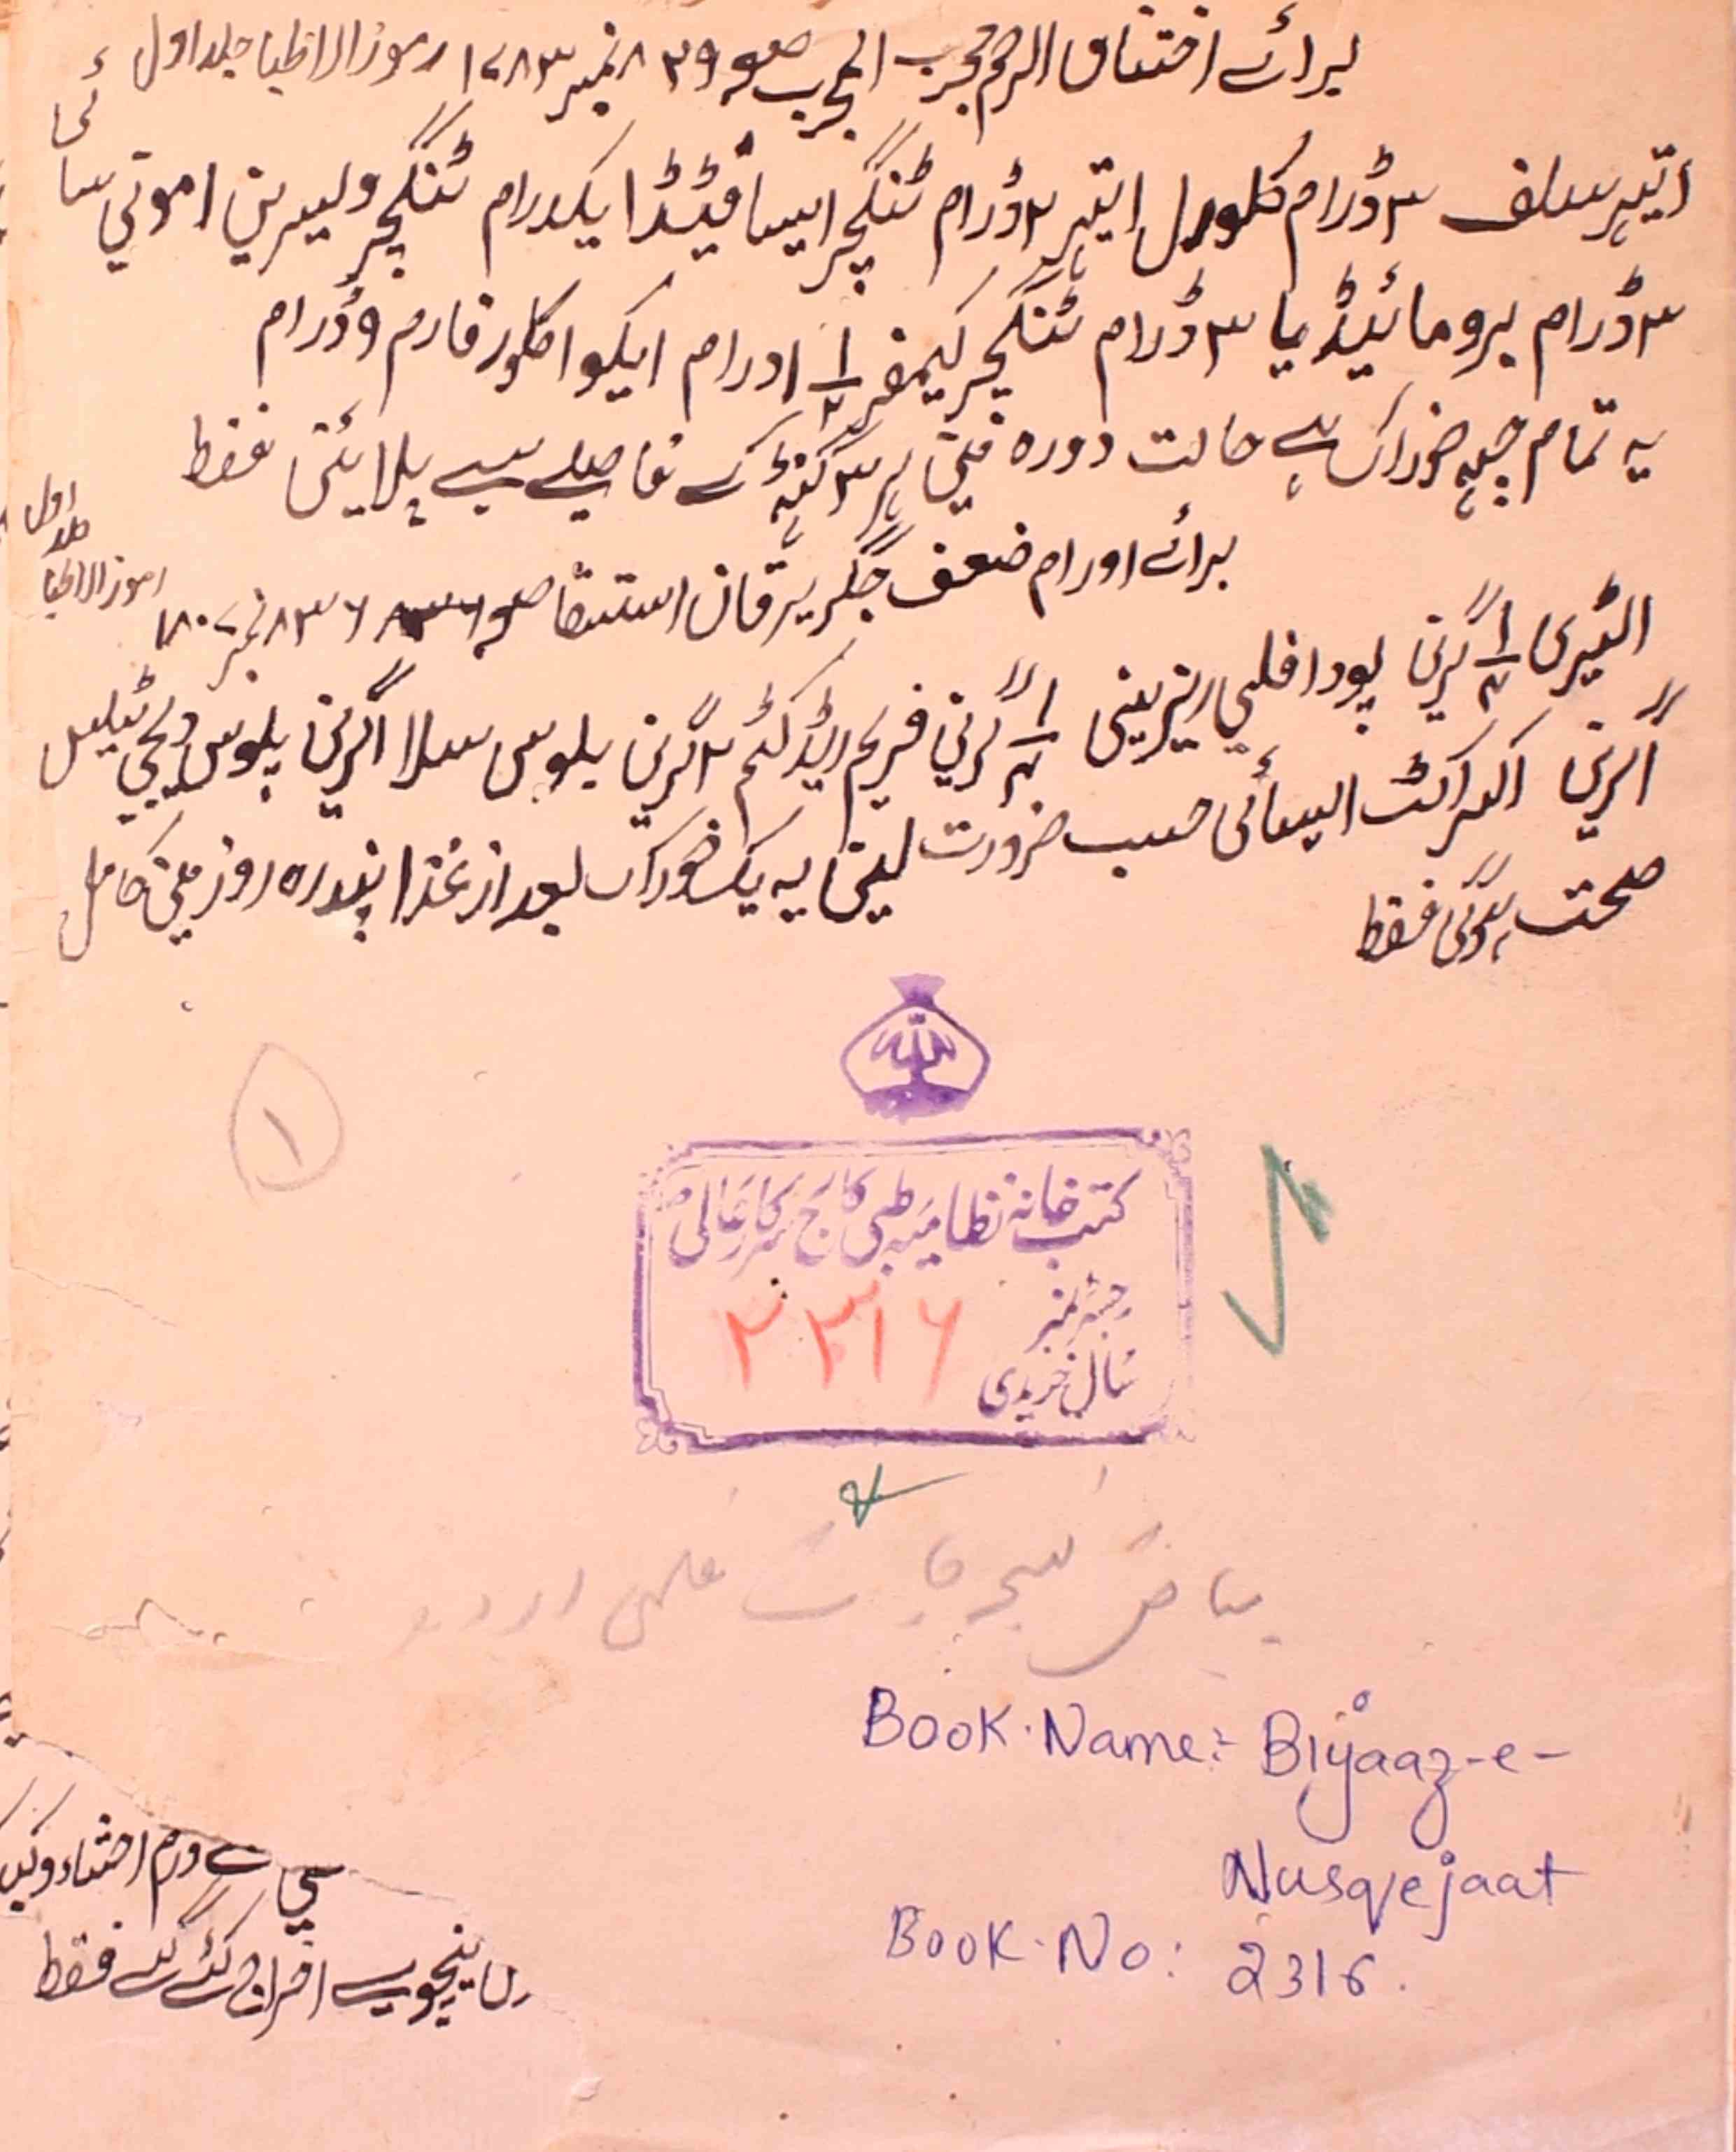 برائے اختناق الرحم مجرب المجرب صفحہ ۸۳۹ نمبر ۱۷۸۳ رموز الاطبا جلد اول
ایتہر سلف ۳ ڈرام کلورل ایتہر ۲ ڈرام ٹنگچر ایسافیٹڈا یکدرام ٹنگچر ولیرین امونی سائی
۳ ڈرام برومائیڈیا ۳ ڈرام ٹنگچر کیمفر ۱ ۱/۲ درام ایکوا کلورفارم ۹ ڈرام
یہ تمام چھہ خوراک ہے حالت دورہ میں ہر ۳ گھنٹہ کے فاصلے سے پلائیں فقط
برائے اورام ضعف جگر یرقان استسقا صفحہ ۸۳۶ نمبر ۱۸۰۷ رموز الاطبا جلد اول
الٹیری ۱/۴ گرین پوڈافلی ریزینی ۱/۴ گرین فریم ریڈکٹم ۲ گرین پلوس سلا ۱ گرین پلوس ڈیجی ٹیلیس
۱ گرین اکسراکٹ السائی حسب ضرورت لیں یہ یک خوراک بعد از غذا پندرہ روز میں کامل
صحت ہوگی فقط
۱
کتب خانہ نظامیہ طبی کالج سرکار عالی
رجسٹر نمبر
۲۳۱۶
سال خریدی
بیاض نسخہ جات قلمی اردو
Book Name:- Biyaaz-e-
Nusqejaat
Book No: 2316.
سے ورم احشاء و
اخراج کئے گئے فقط